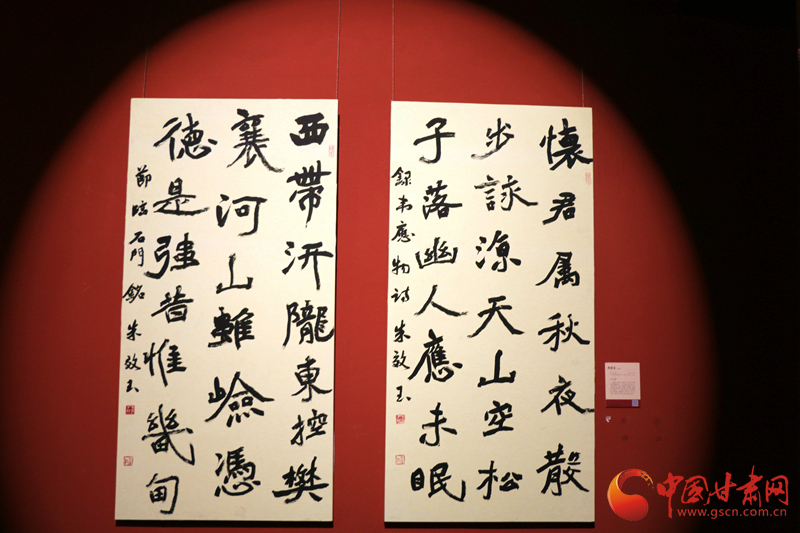 懷君属秋夜散
步詠涼天山空松
子落幽人應未眠
録韋應物詩 朱效玉
西帶汧隴東控樊
襄河山雖嶮憑
德是强昔惟畿甸
節臨石門銘 朱效玉
中国甘肃网
www.gscn.com.cn